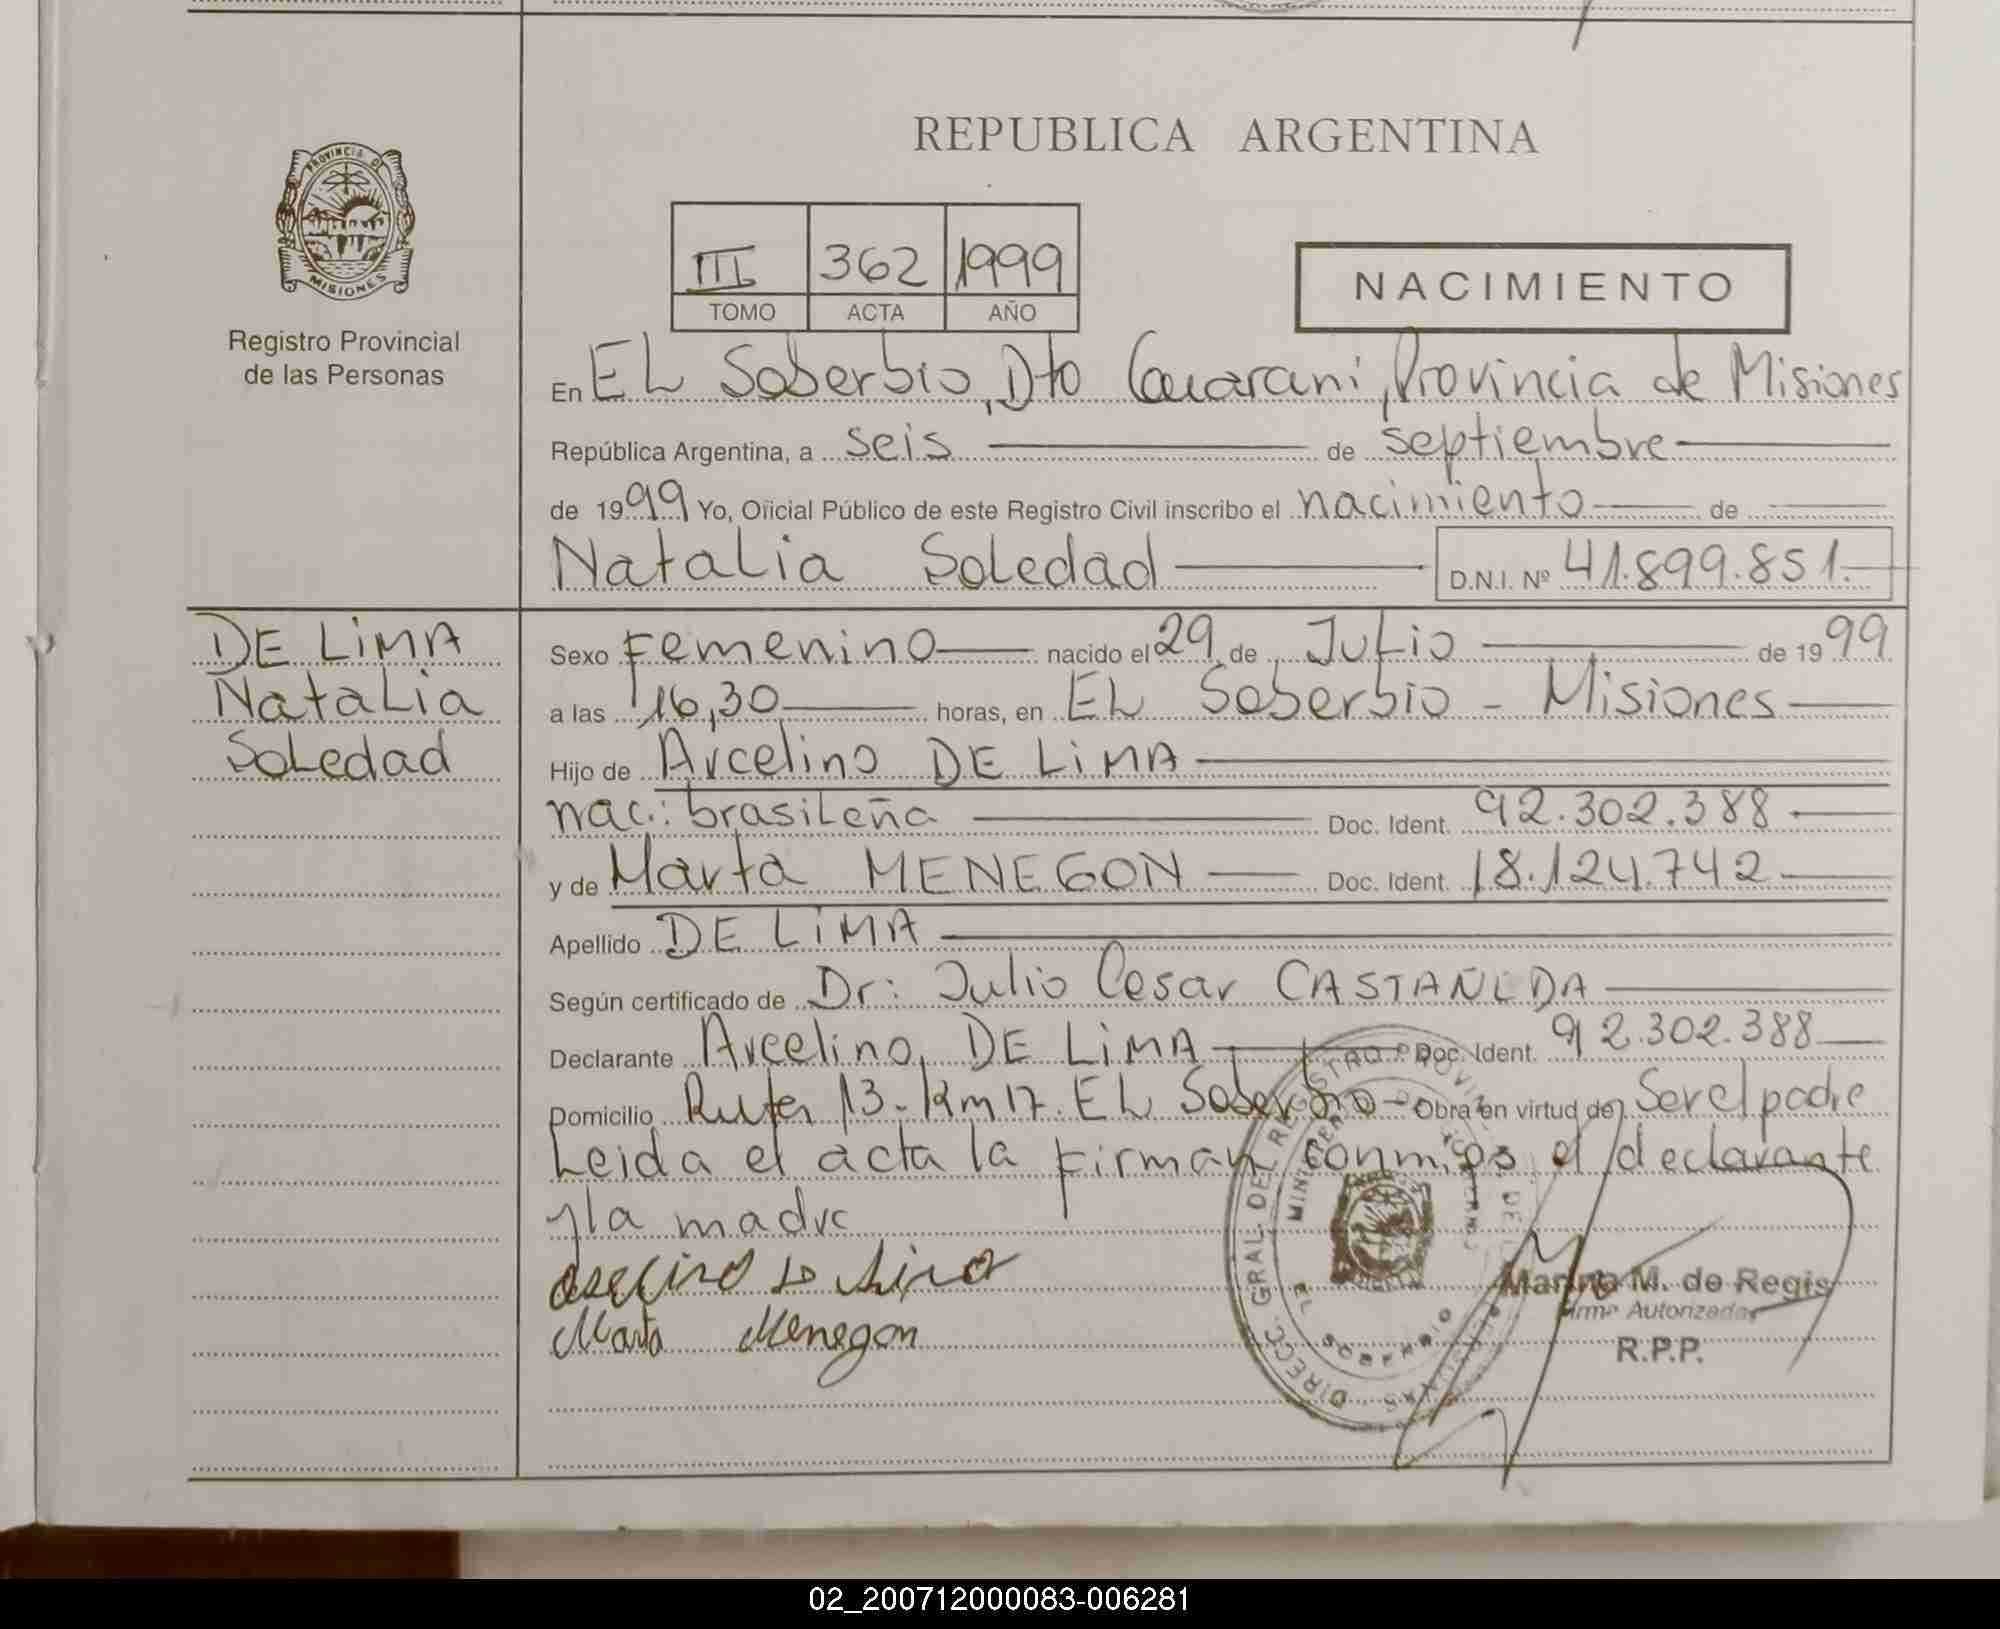 REPUBLICA ARGENTINA
PROVINCIA DE
MISIONES
Registro Provincial
de las Personas
III 362 1999
TOMO ACTA AÑO
NACIMIENTO
En EL Soberbio, Dto Guarani, Provincia de Misiones
República Argentina, a seis de septiembre
de 1999 Yo, Oficial Público de este Registro Civil inscribo el nacimiento de
Natalia Soledad D.N.I. Nº 41.899.851.
DE LIMA
Natalia
Soledad
Sexo Femenino nacido el 29 de Julio de 1999
a las 16,30 horas, en EL Soberbio - Misiones
Hijo de Arcelino DE LIMA
nac.: brasileña Doc. Ident. 92.302.388
y de Marta MENEGON Doc. Ident. 18.124.742
Apellido DE LIMA
Según certificado de Dr: Julio Cesar CASTAÑEDA
Declarante Arcelino DE LIMA Doc. Ident. 92.302.388
Domicilio Ruta 13 - Km 17. EL Soberbio - Obra en virtud de Ser el padre
Leida el acta la firman conmigo el declarante
y la madre
Marta Menegon
DIRECC. GRAL. DEL REGISTRO PROVINCIAL DE LAS PERSONAS
EL SOBERBIO
Marina M. de Regis
Firma Autorizada
R.P.P.
02_200712000083-006281